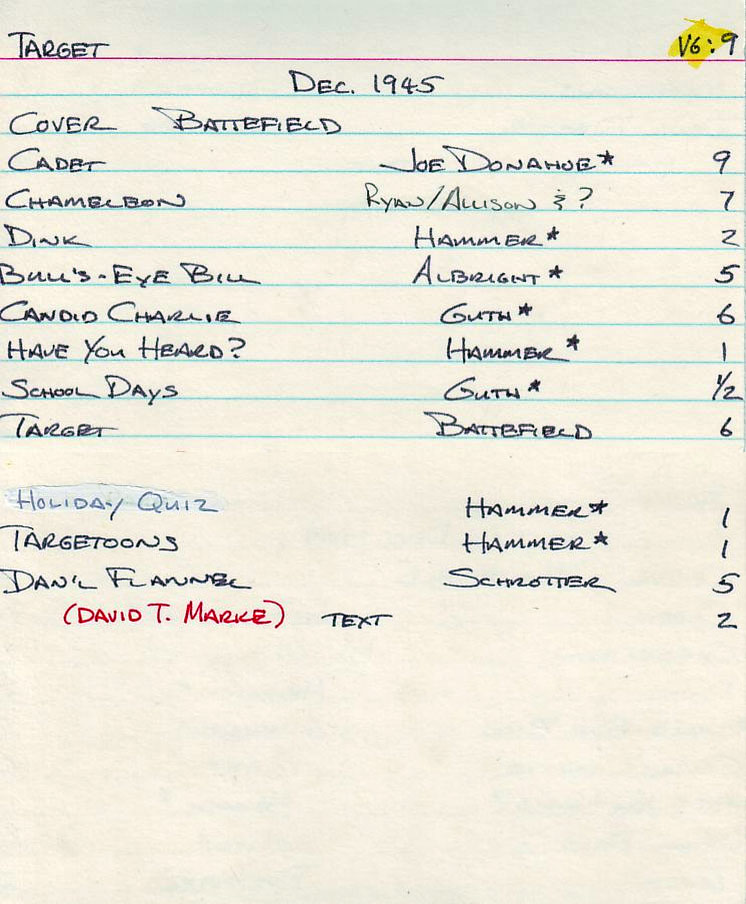 TARGET V6:9
DEC. 1945
COVER BATTEFIELD
CADET JOE DONAHOE* 9
CHAMELEON RYAN/ALLISON & ? 7
DINK HAMMER* 2
BULL'S-EYE BILL ALBRIGHT* 5
CANDID CHARLIE GUTH* 6
HAVE YOU HEARD? HAMMER* 1
SCHOOL DAYS GUTH* 1/2
TARGET BATTEFIELD 6
HOLIDAY QUIZ HAMMER* 1
TARGETOONS HAMMER* 1
DAN'L FLANNEL SCHROTTER 5
(DAVID T. MARKE) TEXT 2